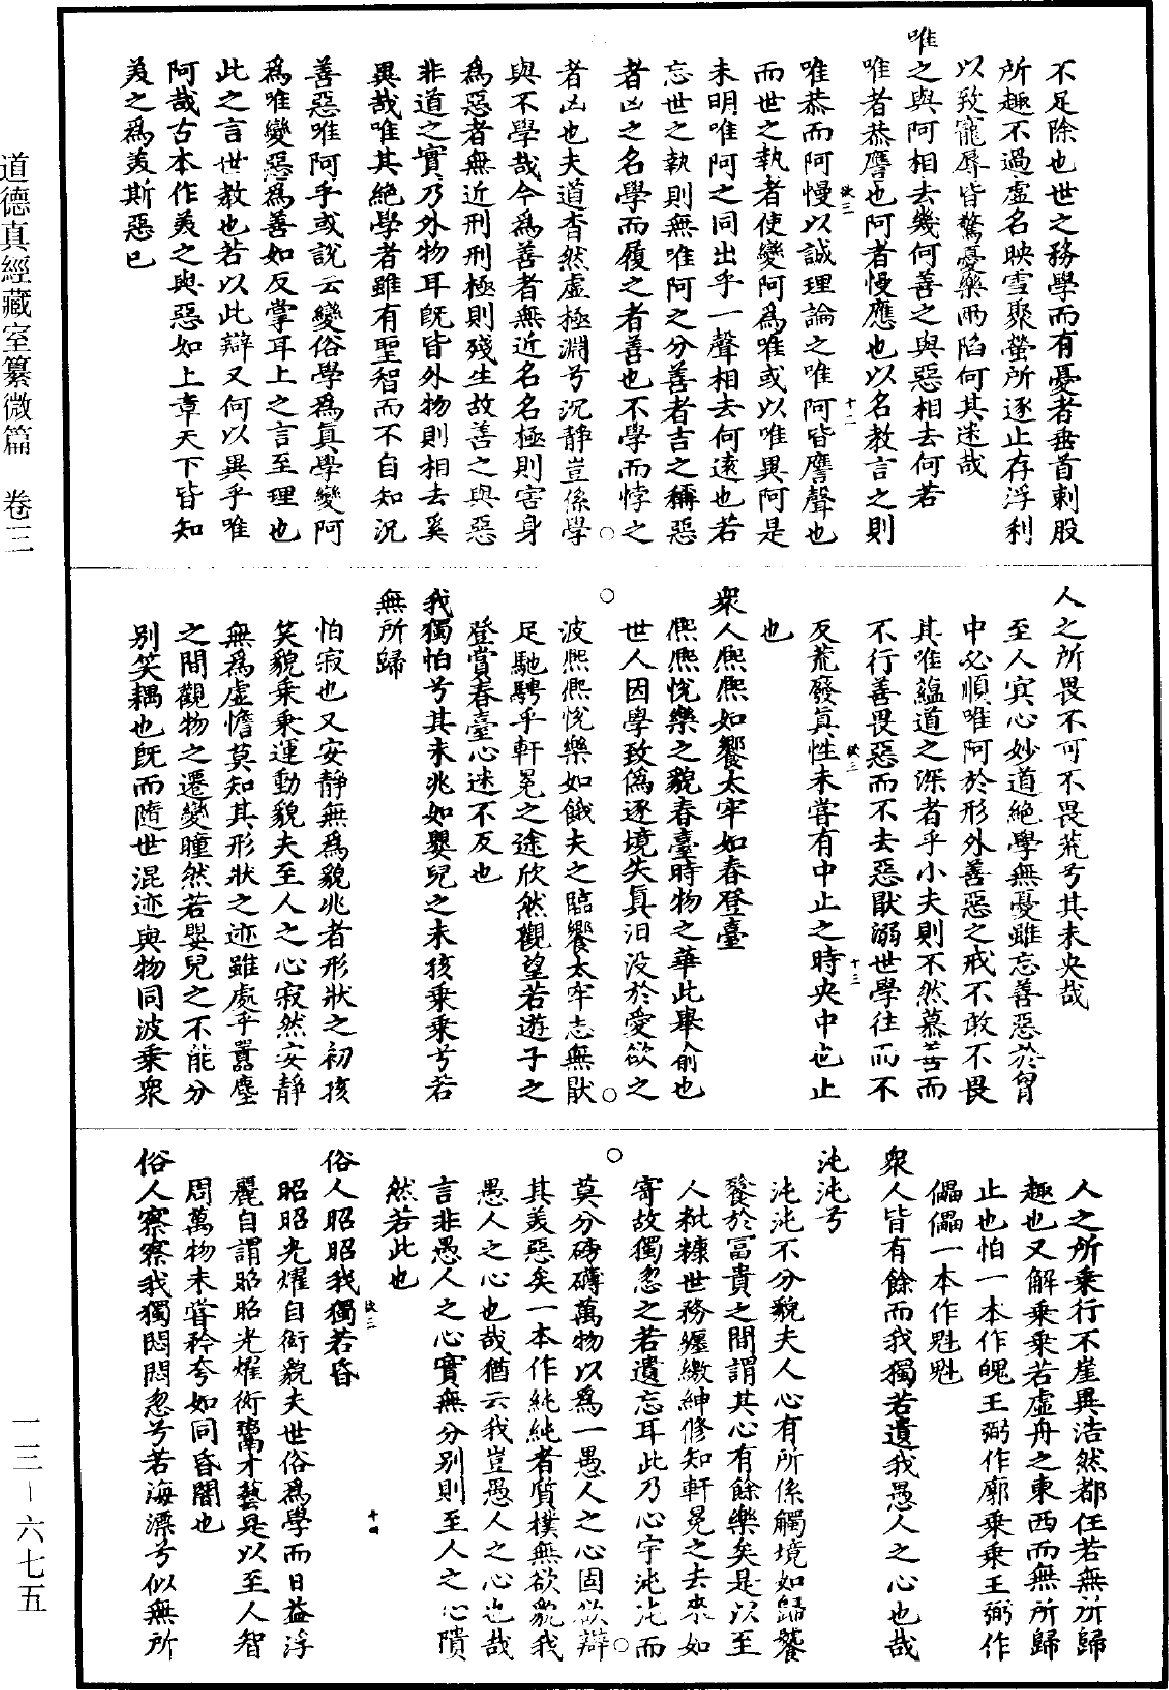 不足除也世之務學而有憂者垂首刺股
所趣不過虛名映雪聚螢所逐止存浮利
以致寵辱皆驚憂樂兩陷何其迷哉
唯之與阿相去幾何善之與惡相去何若
唯者恭譍也阿者慢應也以名教言之則
唯恭而阿慢以誠理論之唯阿皆譍聲也
而世之執者使變阿為唯或以唯異阿是
未明唯阿之同出乎一聲相去何遠也若
忘世之執則無唯阿之分善者吉之稱惡
者凶之名學而履之者善也不學而悖之
者凶也夫道杳然虛極淵兮沉靜豈係學
與不學哉今為善者無近名名極則害身
為惡者無近刑刑極則殘生故善之與惡
非道之實乃外物耳既皆外物則相去奚
異哉唯其絕學者雖有聖智而不自知況
善惡唯阿乎或說云變俗學為真學變阿
為唯變惡為善如反掌耳上之言至理也
此之言世教也若以此辯又何以異乎唯
阿哉古本作美之與惡如上章天下皆知
美之為美斯惡已
人之所畏不可不畏荒兮其未央哉
至人冥心妙道絕學無憂雖忘善惡於胷
中必順唯阿於形外善惡之戒不敢不畏
其唯蘊道之深者乎小夫則不然慕善而
不行善畏惡而不去惡猒溺世學往而不
反荒廢真性未甞有中止之時央中也止
也
衆人熈熈如饗太牢如春登臺
熈熈悅樂之貌春臺時物之華此舉俞也
世人因學致偽逐境失真汨没於愛欲之
波熈熈悅樂如餓夫之臨饗太牢志無猒
足馳騁乎軒冕之途欣然觀望若遊子之
登賞春臺心迷不反也
我獨怕兮其未兆如嬰兒之未孩乗乗兮若
無所歸
怕寂也又安靜無為貌兆者形狀之初孩
笑貌乗乗運動貌夫至人之心寂然安靜
無為虛憺莫知其形狀之迹雖處乎囂塵
之間觀物之遷變瞳然若嬰兒之不能分
別笑耦也既而隨世混迹與物同波乗衆
人之所乗行不崖異浩然都任若無所歸
趣也又解乗乗若虛舟之東西而無所歸
止也怕一本作魄王弼作廓乗乗王弼作
儡儡一本作魁魁
衆人皆有餘而我獨若遺我愚人之心也哉
沌沌兮
沌沌不分貌夫人心有所係觸境如歸饕
餮於富貴之間謂其心有餘樂矣是以至
人粃糠世務纆繳紳修知軒冕之去來如
寄故獨忽之若遺忘耳此乃心宇沌沌而
莫分磅礴萬物以為一愚人之心固欲辯
其美惡矣一本作純純者質樸無欲貌我
愚人之心也哉猶云我豈愚人之心也哉
言非愚人之心實無分別則至人之心隤
然若此也
俗人昭昭我獨若昏
昭昭光耀自衒貌夫世俗為學而日益浮
麗自謂昭昭光耀衒鬻才藝是以至人智
周萬物未甞矜夸如同昏闇也
俗人察察我獨悶悶忽兮若海漂兮似無所
道德真經藏室纂微篇　卷三
一三－六七五
欲三
十二
欲三
十三
欲三
十四